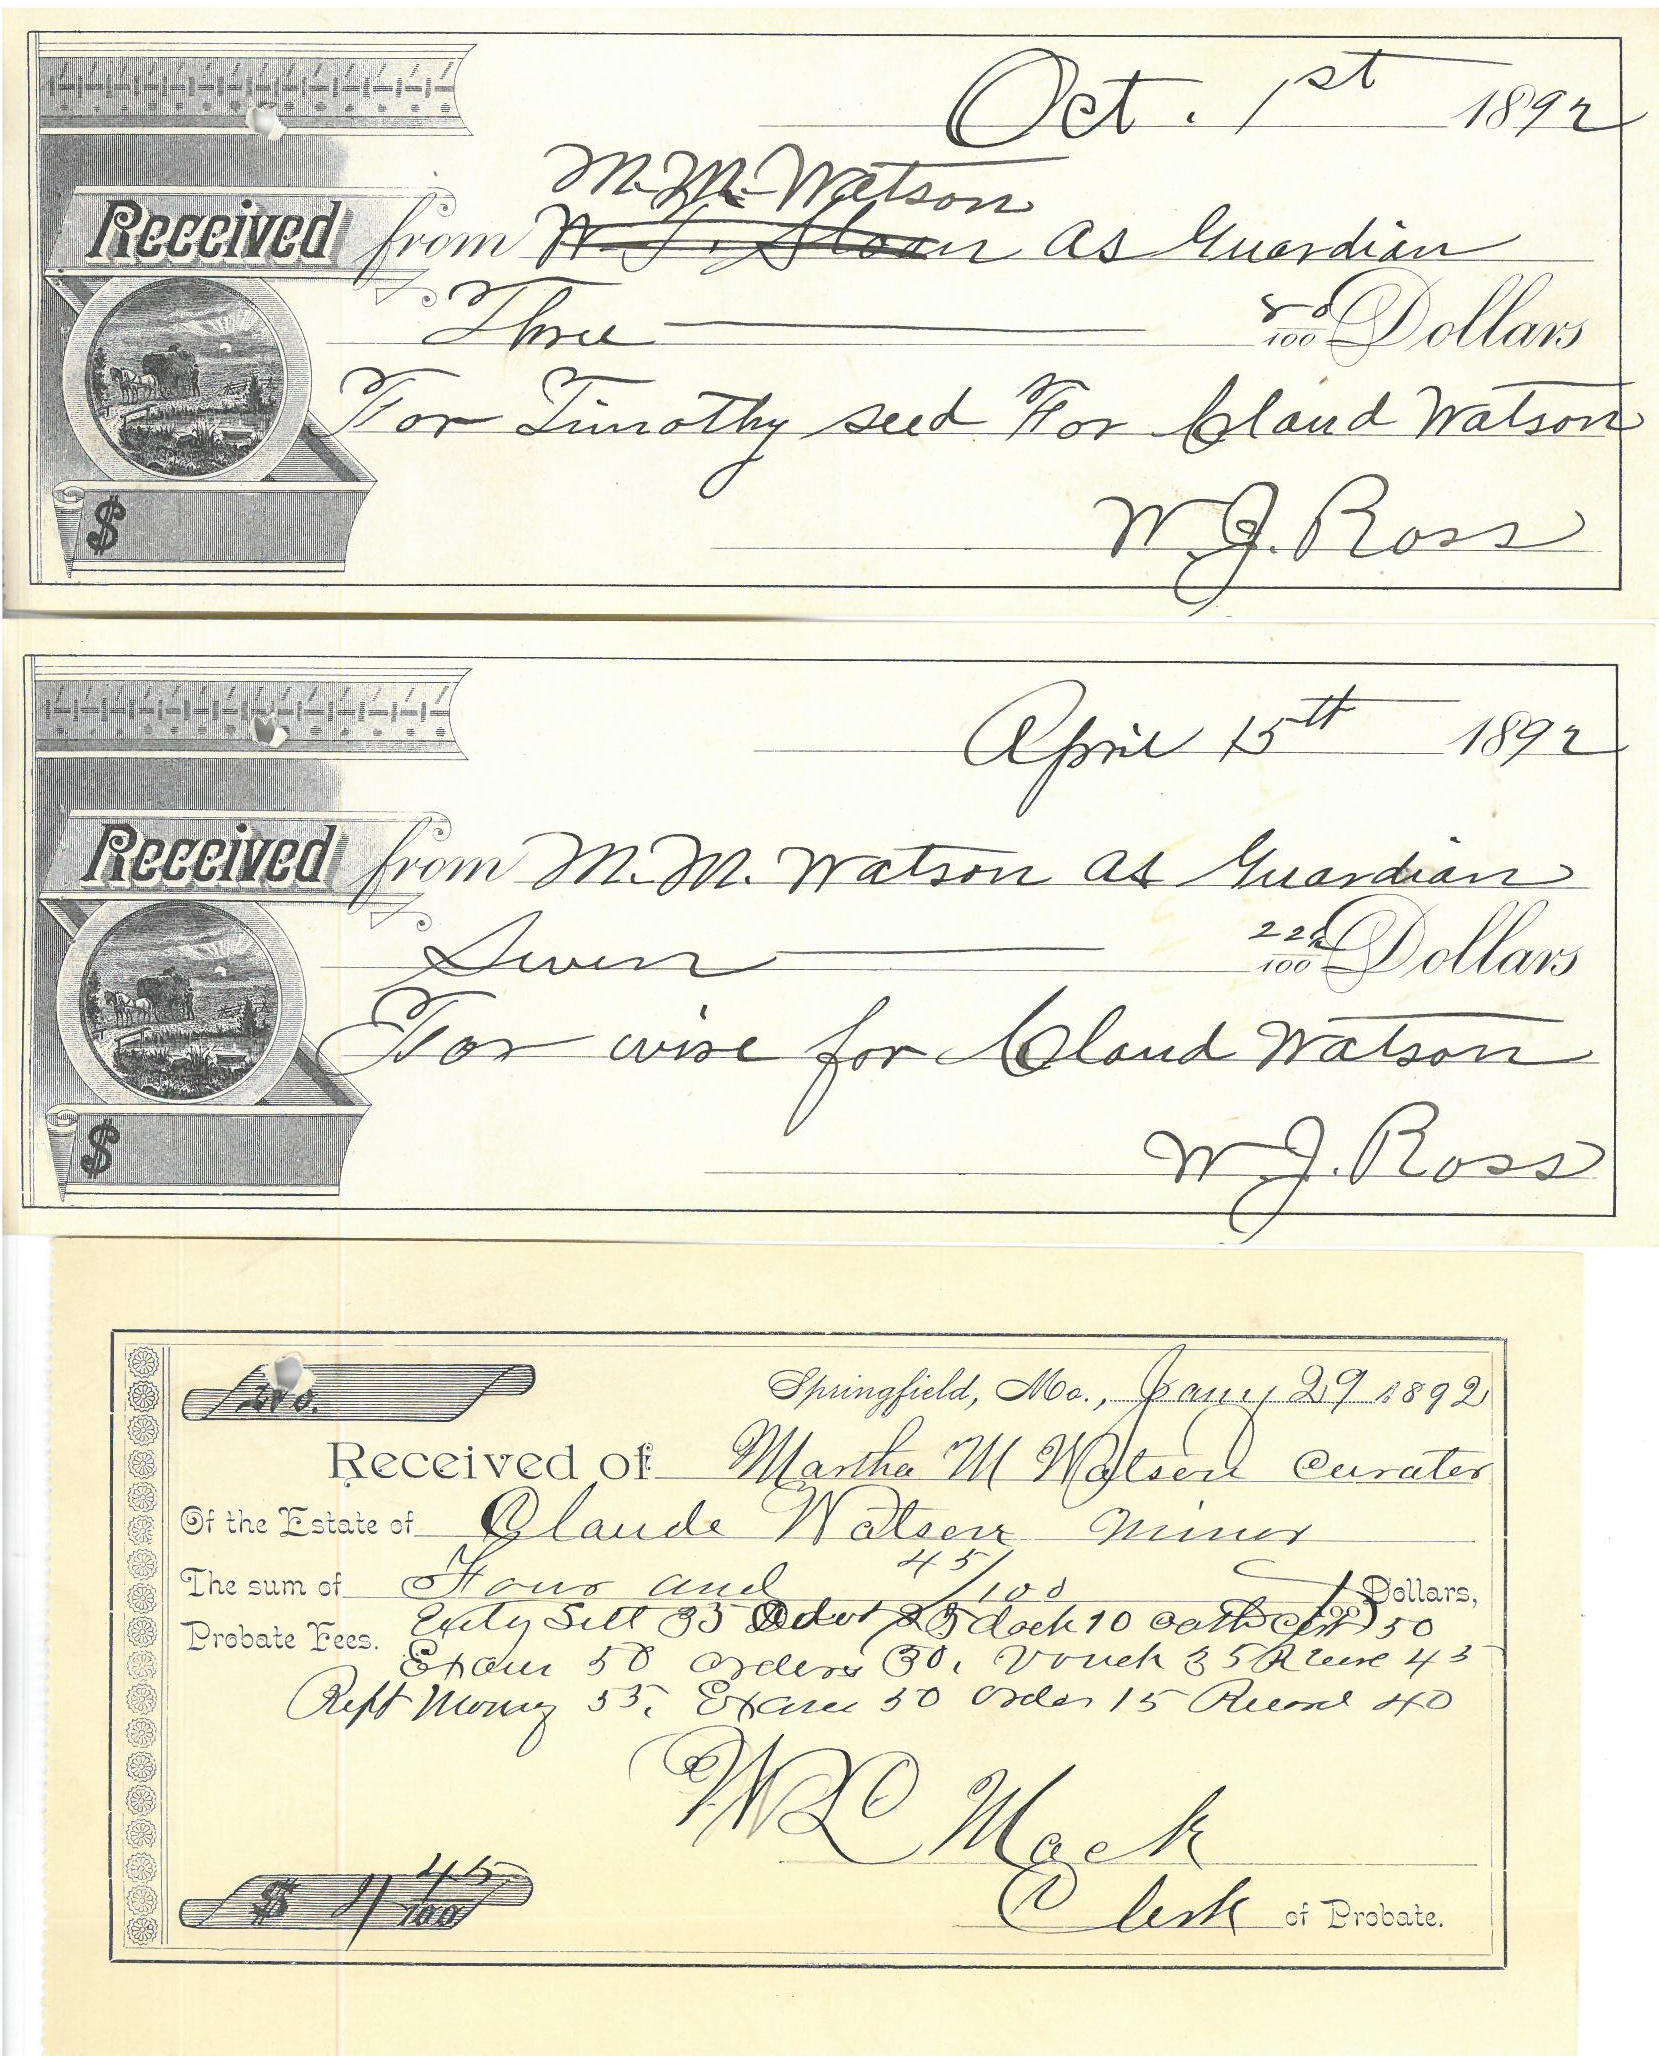 Oct. 1st 1892
M. M. Watson
Received from W. J. Sloan as Guardian
Three 80/100 Dollars
For Timothy seed For Claud Watson
W. J. Ross
$
April 15th 1892
Received from M. M. Watson as Guardian
Seven 22½/100 Dollars
For wire for Claud Watson
W. J. Ross
$
No.
Springfield, Mo., Jany 29 1892
Received of Martha M Watson Curater
Of the Estate of Claude Watson Minor
The sum of Four and 45/100 Dollars,
Probate Fees. Sett 35 25 dock 10 oath 50
Exam 50 orders 30. Vouch 35 45
Rept Money 55. Exam 50 order 15 Record 40
W L Mack
$ 4 45/100
Clerk of Probate.